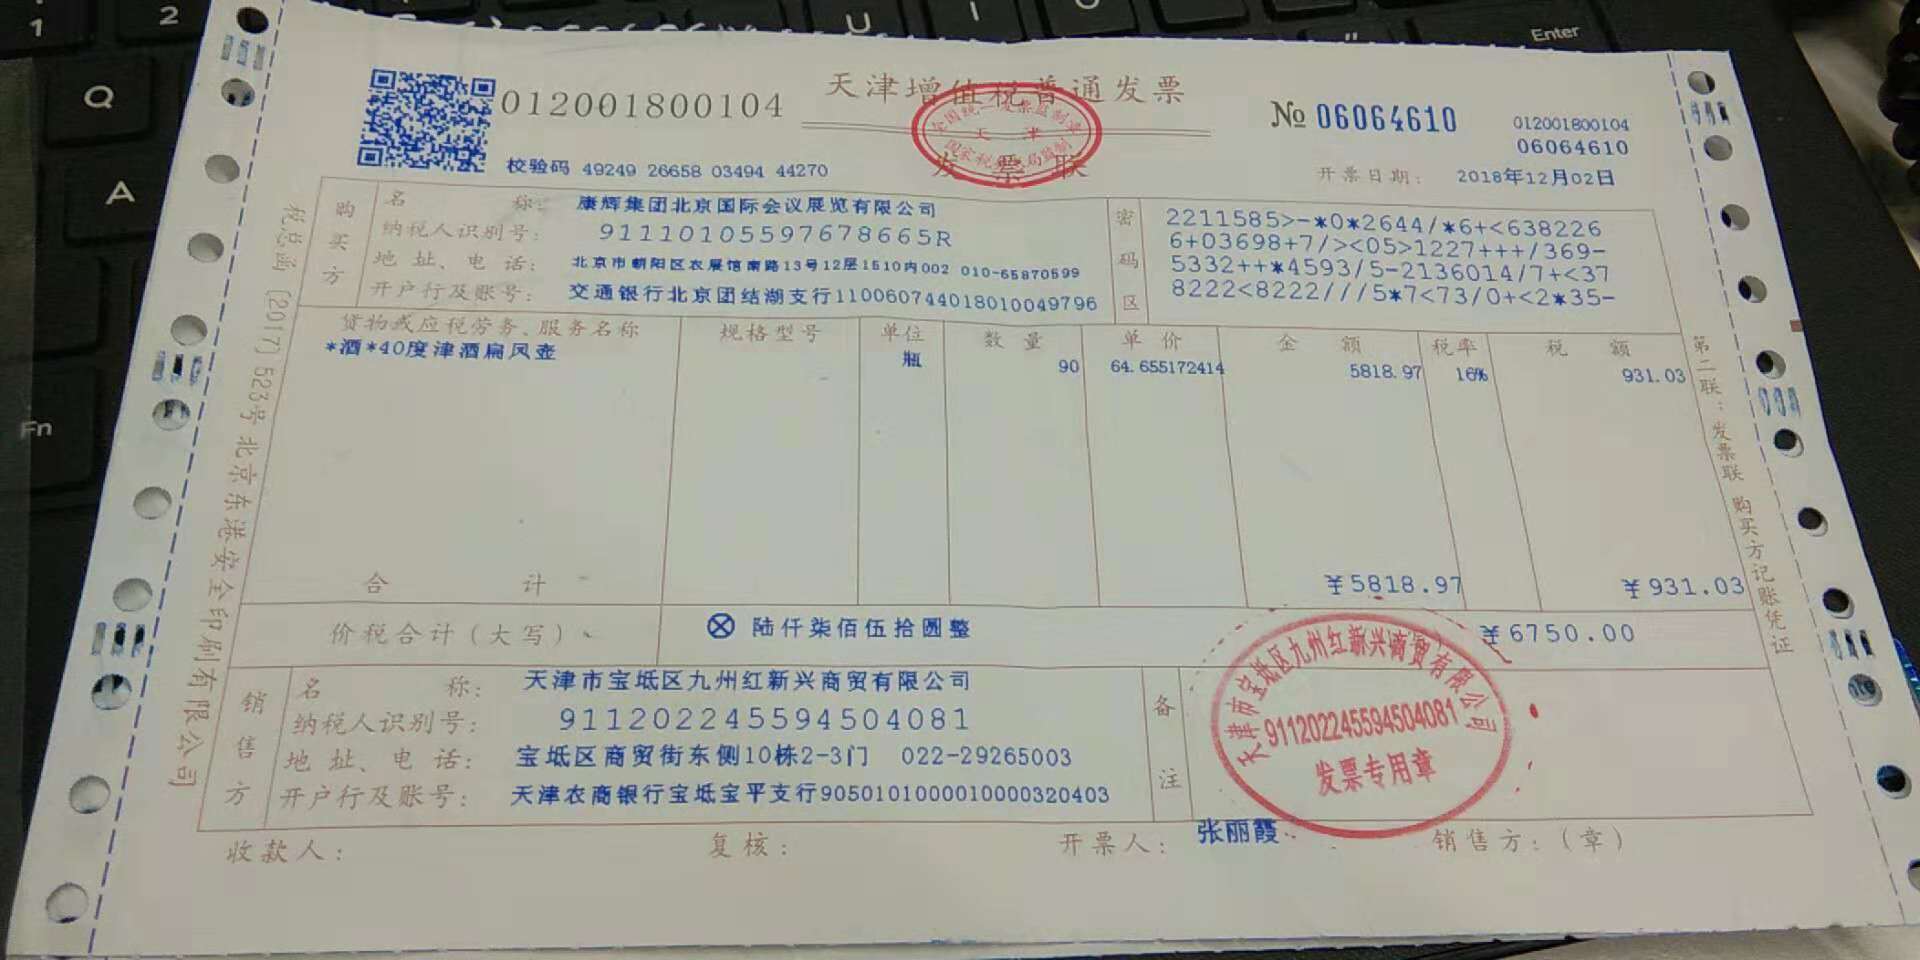 天津增值税普通发票
012001800104
№ 06064610
012001800104
06064610
全国统一发票监制章
天津
国家税务总局监制
发票联
校验码 49249 26658 03494 44270
开票日期： 2018年12月02日
购买方
名称： 康辉集团北京国际会议展览有限公司
纳税人识别号： 91110105597678665R
地址、电话： 北京市朝阳区农展馆南路13号12层1510内002 010-65870599
开户行及账号： 交通银行北京团结湖支行110060744018010049796
密码区
2211585>-*0*2644/*6+<638226
6+03698+7/><05>1227+++/369-
5332++*4593/5-2136014/7+<37
8222<8222///5*7<73/0+<2*35-
货物或应税劳务、服务名称 规格型号 单位 数量 单价 金额 税率 税额
*酒*40度津酒扁凤壶 瓶 90 64.655172414 5818.97 16% 931.03
合计 ￥5818.97 ￥931.03
价税合计（大写） ⊗ 陆仟柒佰伍拾圆整 ￥6750.00
销售方
名称： 天津市宝坻区九州红新兴商贸有限公司
纳税人识别号： 911202245594504081
地址、电话： 宝坻区商贸街东侧10栋2-3门 022-29265003
开户行及账号： 天津农商银行宝坻宝平支行9050101000010000320403
备注
天津市宝坻区九州红新兴商贸有限公司
911202245594504081
发票专用章
收款人： 复核： 开票人： 张丽霞 销售方：（章）
税总函〔2017〕523号北京东港安全印刷有限公司
第二联：发票联 购买方记账凭证
1
2
Q
A
Fn
U
I
Enter